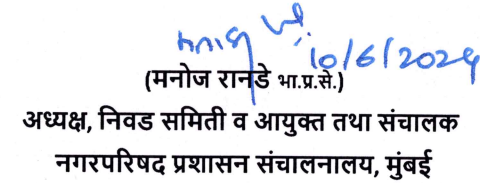 10/6/2024
(मनोज रानडे भा.प्र.से.)
अध्यक्ष, निवड समिती व आयुक्त तथा संचालक
नगरपरिषद प्रशासन संचालनालय, मुंबई